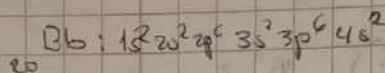 ₂₀Bb: 1s² 2s² 2p⁶ 3s² 3p⁶ 4s²